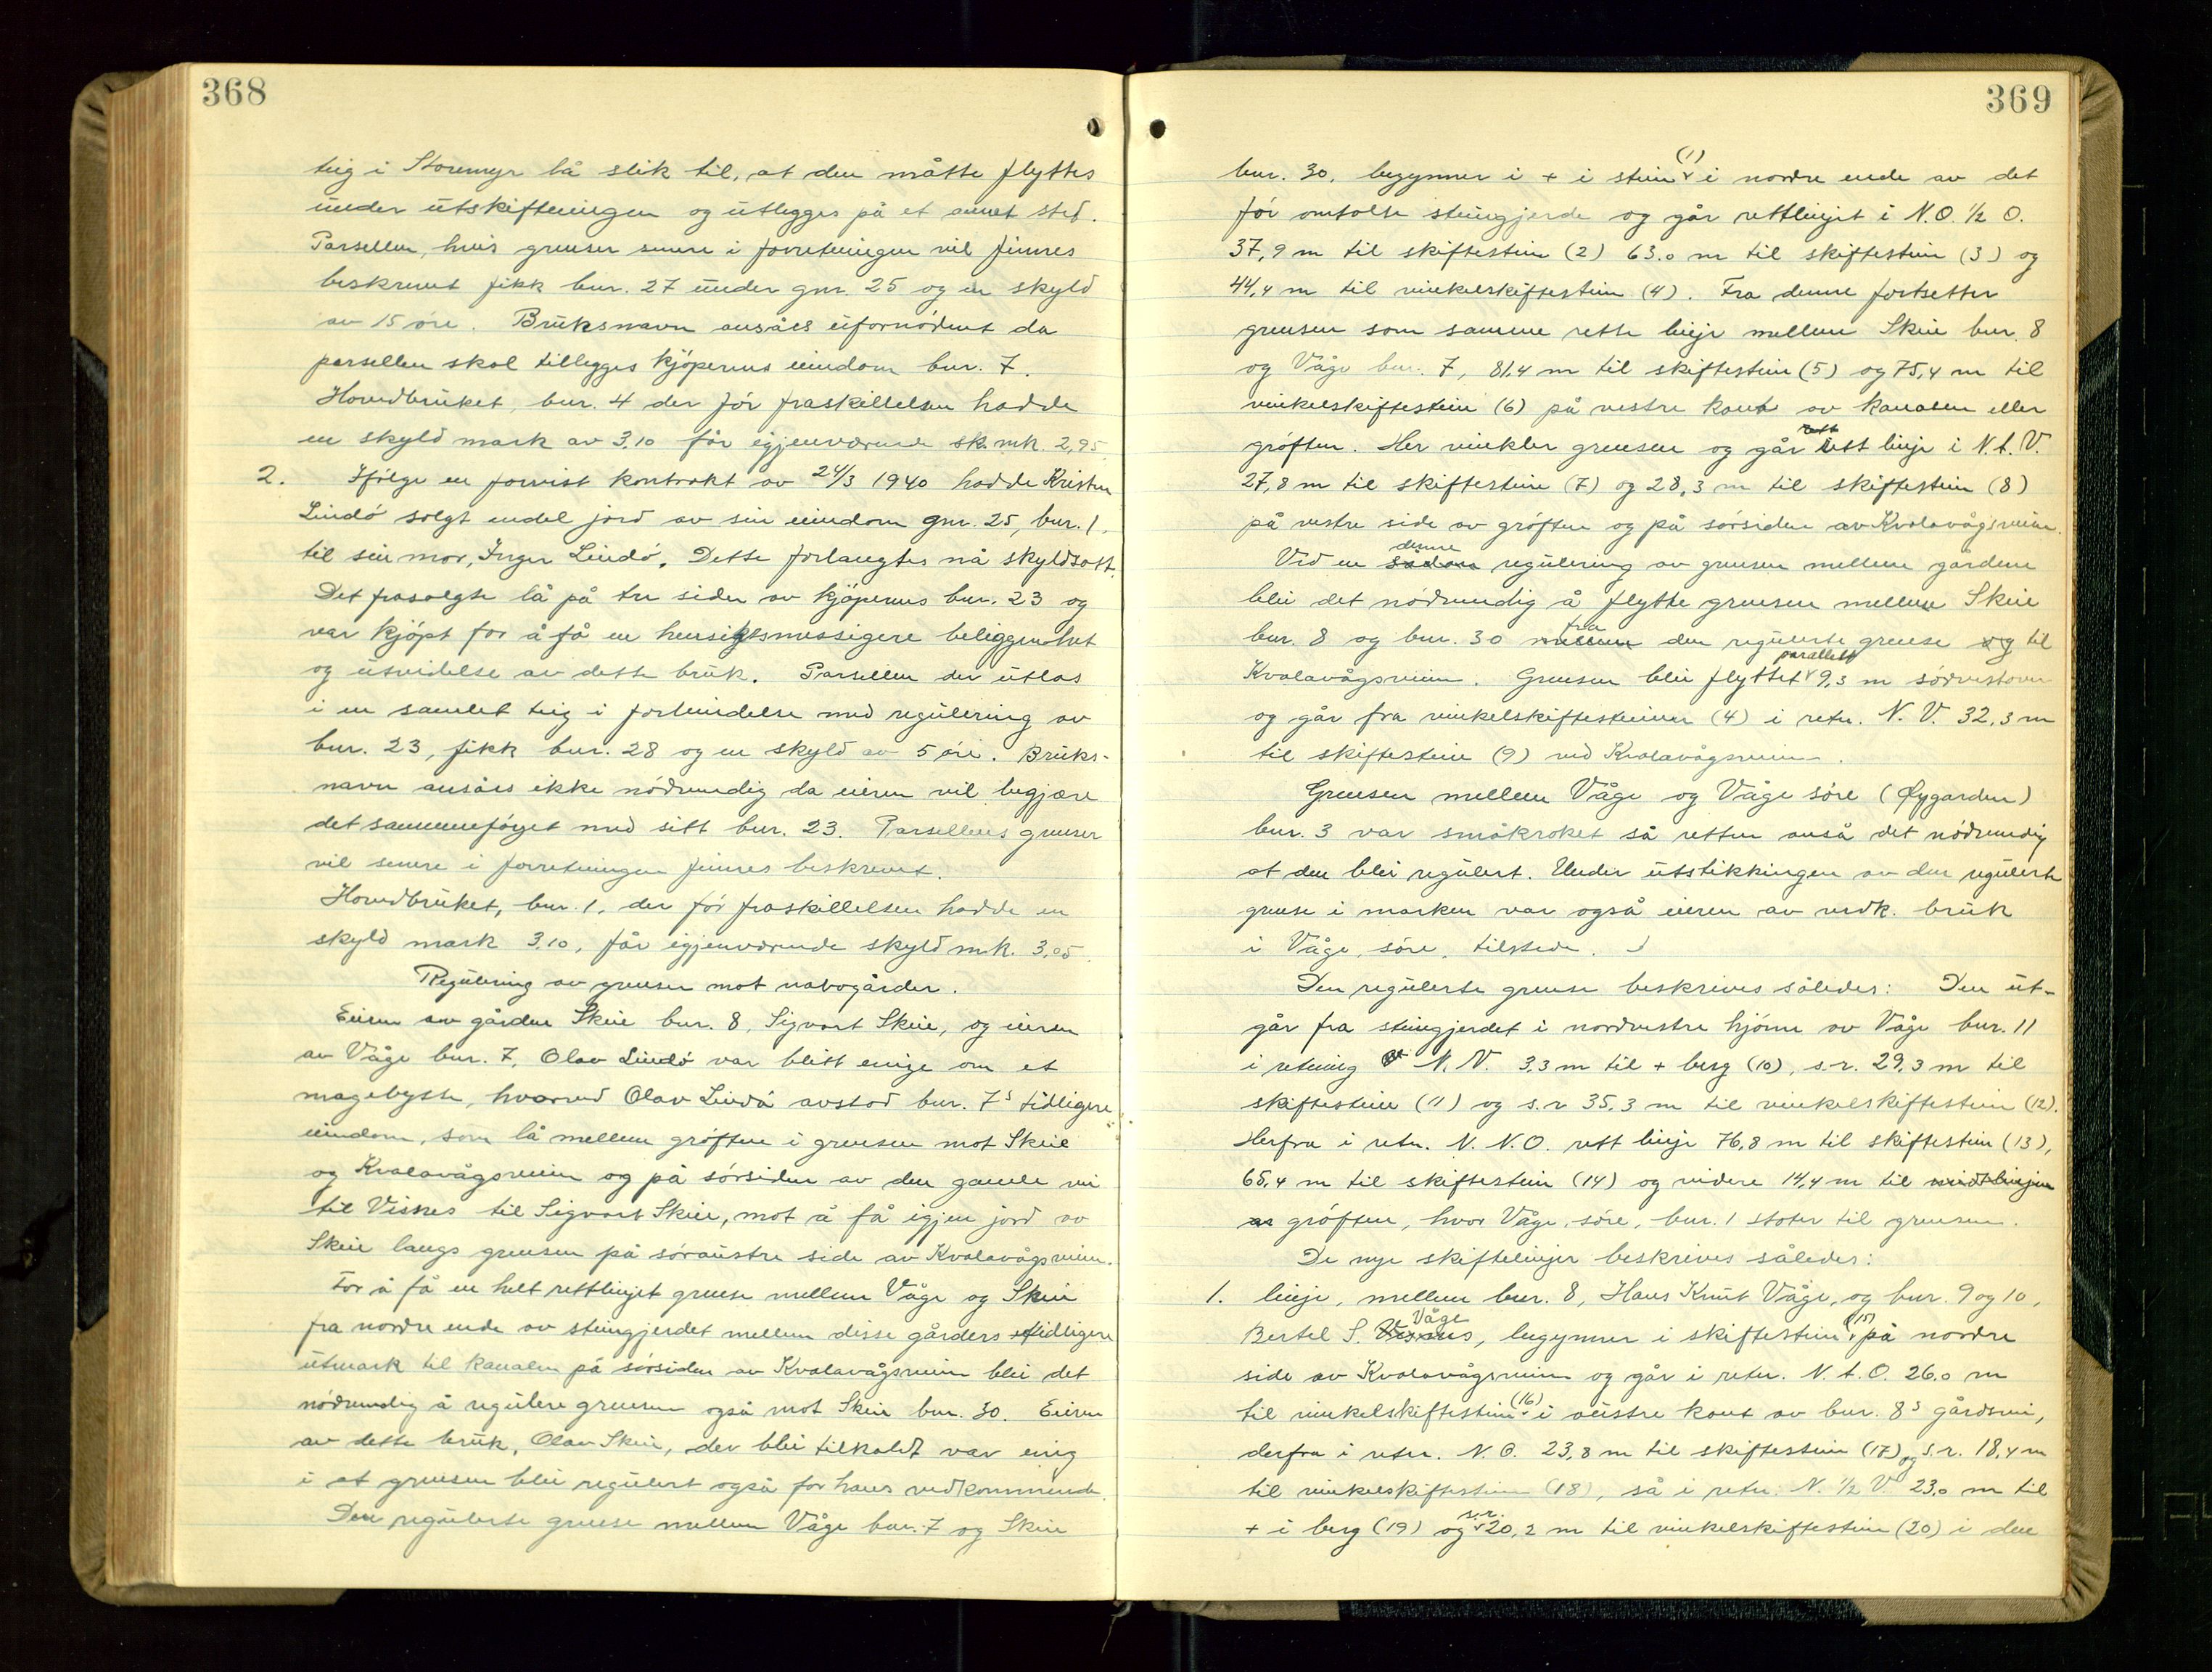 368
teig i Storemyr lå slik til, at den måtte flyttes
under utskiftningen og utlegges på et annet sted.
Parsellen, hvis grenser senere i forretningen vil finnes
beskrevet fikk bnr. 27 under gnr. 25 og en skyld
av 15 øre. Bruksnavn ansåes ufornødent da
parsellen skal tillegges kjøperens eiendom bnr. 7.
Hovedbruket, bnr. 4 der før fraskillelsen hadde
en skyld mark av 3,10 får igjenværende sk. mk. 2,95.
2. Ifølge en forevist kontrakt av 24/3 1940 hadde Kristen
Lindø solgt endel jord av sin eiendom gnr. 25, bnr. 1.
til sin mor, Inger Lindø. Dette forlangtes nå skyldsatt.
Det frasolgte lå på tre sider av kjøperens bnr. 23 og
var kjøpt for å få en hensigtsmessigere beliggenhet
og utvidelse av dette bruk. Parsellen der utlas
i en samlet teig i forbindelse med regulering av
bnr. 23, fikk bnr. 28 og en skyld av 5 øre. Bruks-
navn ansåes ikke nødvendig da eieren vil begjære
det sammenføyet med sitt bnr. 23. Parsellens grenser
vil senere i forretningen finnes beskrevet.
Hovedbruket, bnr. 1, der før fraskillelsen hadde en
skyld mark 3,10, får igjenværende skyld mk. 3,05.
Regulering av grenser mot nabogårder.
Eieren av gården Skeie bnr. 8, Sigvart Skeie, og eieren
av Våge bnr. 7, Olav Lindø var blitt enige om et
magebytte, hvorved Olav Lindø avstod bnr. 7s tidligere
eiendom, som lå mellem grøften i grensen mot Skeie
og Kvalavågsveien og på sørsiden av den gamle vei
til Visnes til Sigvart Skeie, mot å få igjen jord av
Skeie langs grensen på søraustre side av Kvalavågsveien.
For å få en helt rettlinjet grense mellem Våge og Skeie
fra nordre ende av steingjerdet mellem disse gårders tidligere
utmark til kanalen på sørsiden av Kvalavågsveien blei det
nødvendig å regulere grensen også mot Skeie bnr. 30. Eieren
av dette bruk, Olav Skeie, der blei tilkaldt var enig
i at grensen blei regulert også for hans vedkommende.
Den regulerte grense mellem Våge bnr. 7 og Skeie
369
bnr. 30, begynner i + i stein (1) i nordre ende av det
før omtalte steingjerde og går rettlinjet i N.O. ½ O.
37,9 m til skiftestein (2) 63.0 m til skiftestein (3) og
44,4 m til vinkelskiftestein (4). Fra denne fortsetter
grensen som samme rette linje mellem Skeie bnr. 8
og Våge bnr. 7, 81,4 m til skiftestein (5) og 75,4 m til
vinkelskiftestein (6) på vestre kant av kanalen eller
grøften. Her vinkler grensen og går rett linje i N.t.V.
27,8 m til skiftestein (7) og 28,3 m til skiftestein (8)
på vestre side av grøften og på sørsiden av Kvalavågsveien.
Ved en sådan denne regulering av grensen mellem gårdene
blei det nødvendig å flytte grensen mellem Skeie
bnr. 8 og bnr. 30 mellem fra den regulerte grense og til
Kvalavågsveien. Grensen blei flyttet parallelt 9,3 m sørvestover
og går fra vinkelskiftesteinen (4) i retn. N.V. 32,3 m
til skiftestein (9) ved Kvalavågsveien.
Grensen mellem Våge og Våge søre (Øygarden)
bnr. 3 var småkroket så retten anså det nødvendig
at den blei regulert. Under utstikkingen av den regulerte
grense i marken var også eieren av vedk. bruk
i Våge, søre, tilstede.
Den regulerte grense beskrives således: Den ut-
går fra steingjerdet i nordvestre hjørne av Våge bnr. 11
i retning N.V. 3,3 m til + berg (10), s.r. 29,3 m til
skiftestein (11) og s.r 35,3 m til vinkelskiftestein (12).
Herfra i retn. N.N.O. rett linje 76,8 m til skiftestein (13),
65,4 m til skiftestein (14) og videre 14,4 m til midtlinjen
av grøften, hvor Våge, søre, bnr. 1 støter til grensen.
De nye skiftelinjer beskrives således:
1. linje, mellem bnr. 8, Hans Knut Våge, og bnr. 9 og 10,
Bertel S. Visnes Våge, begynner i skiftestein (15) på nordre
side av Kvalavågsveien og går i retn. N.t.O. 26.0 m
til vinkelskiftestein (16) i austre kant av bnr. 8s gårdsvei,
derfra i retn. N.O. 23,8 m til skiftestein (17) og s.r. 18,4 m
til vinkelskiftestein (18), så i retn. N. ½ V. 23,0 m til
+ i berg (19) og s.r. 20,2 m til vinkelskiftestein (20) i den